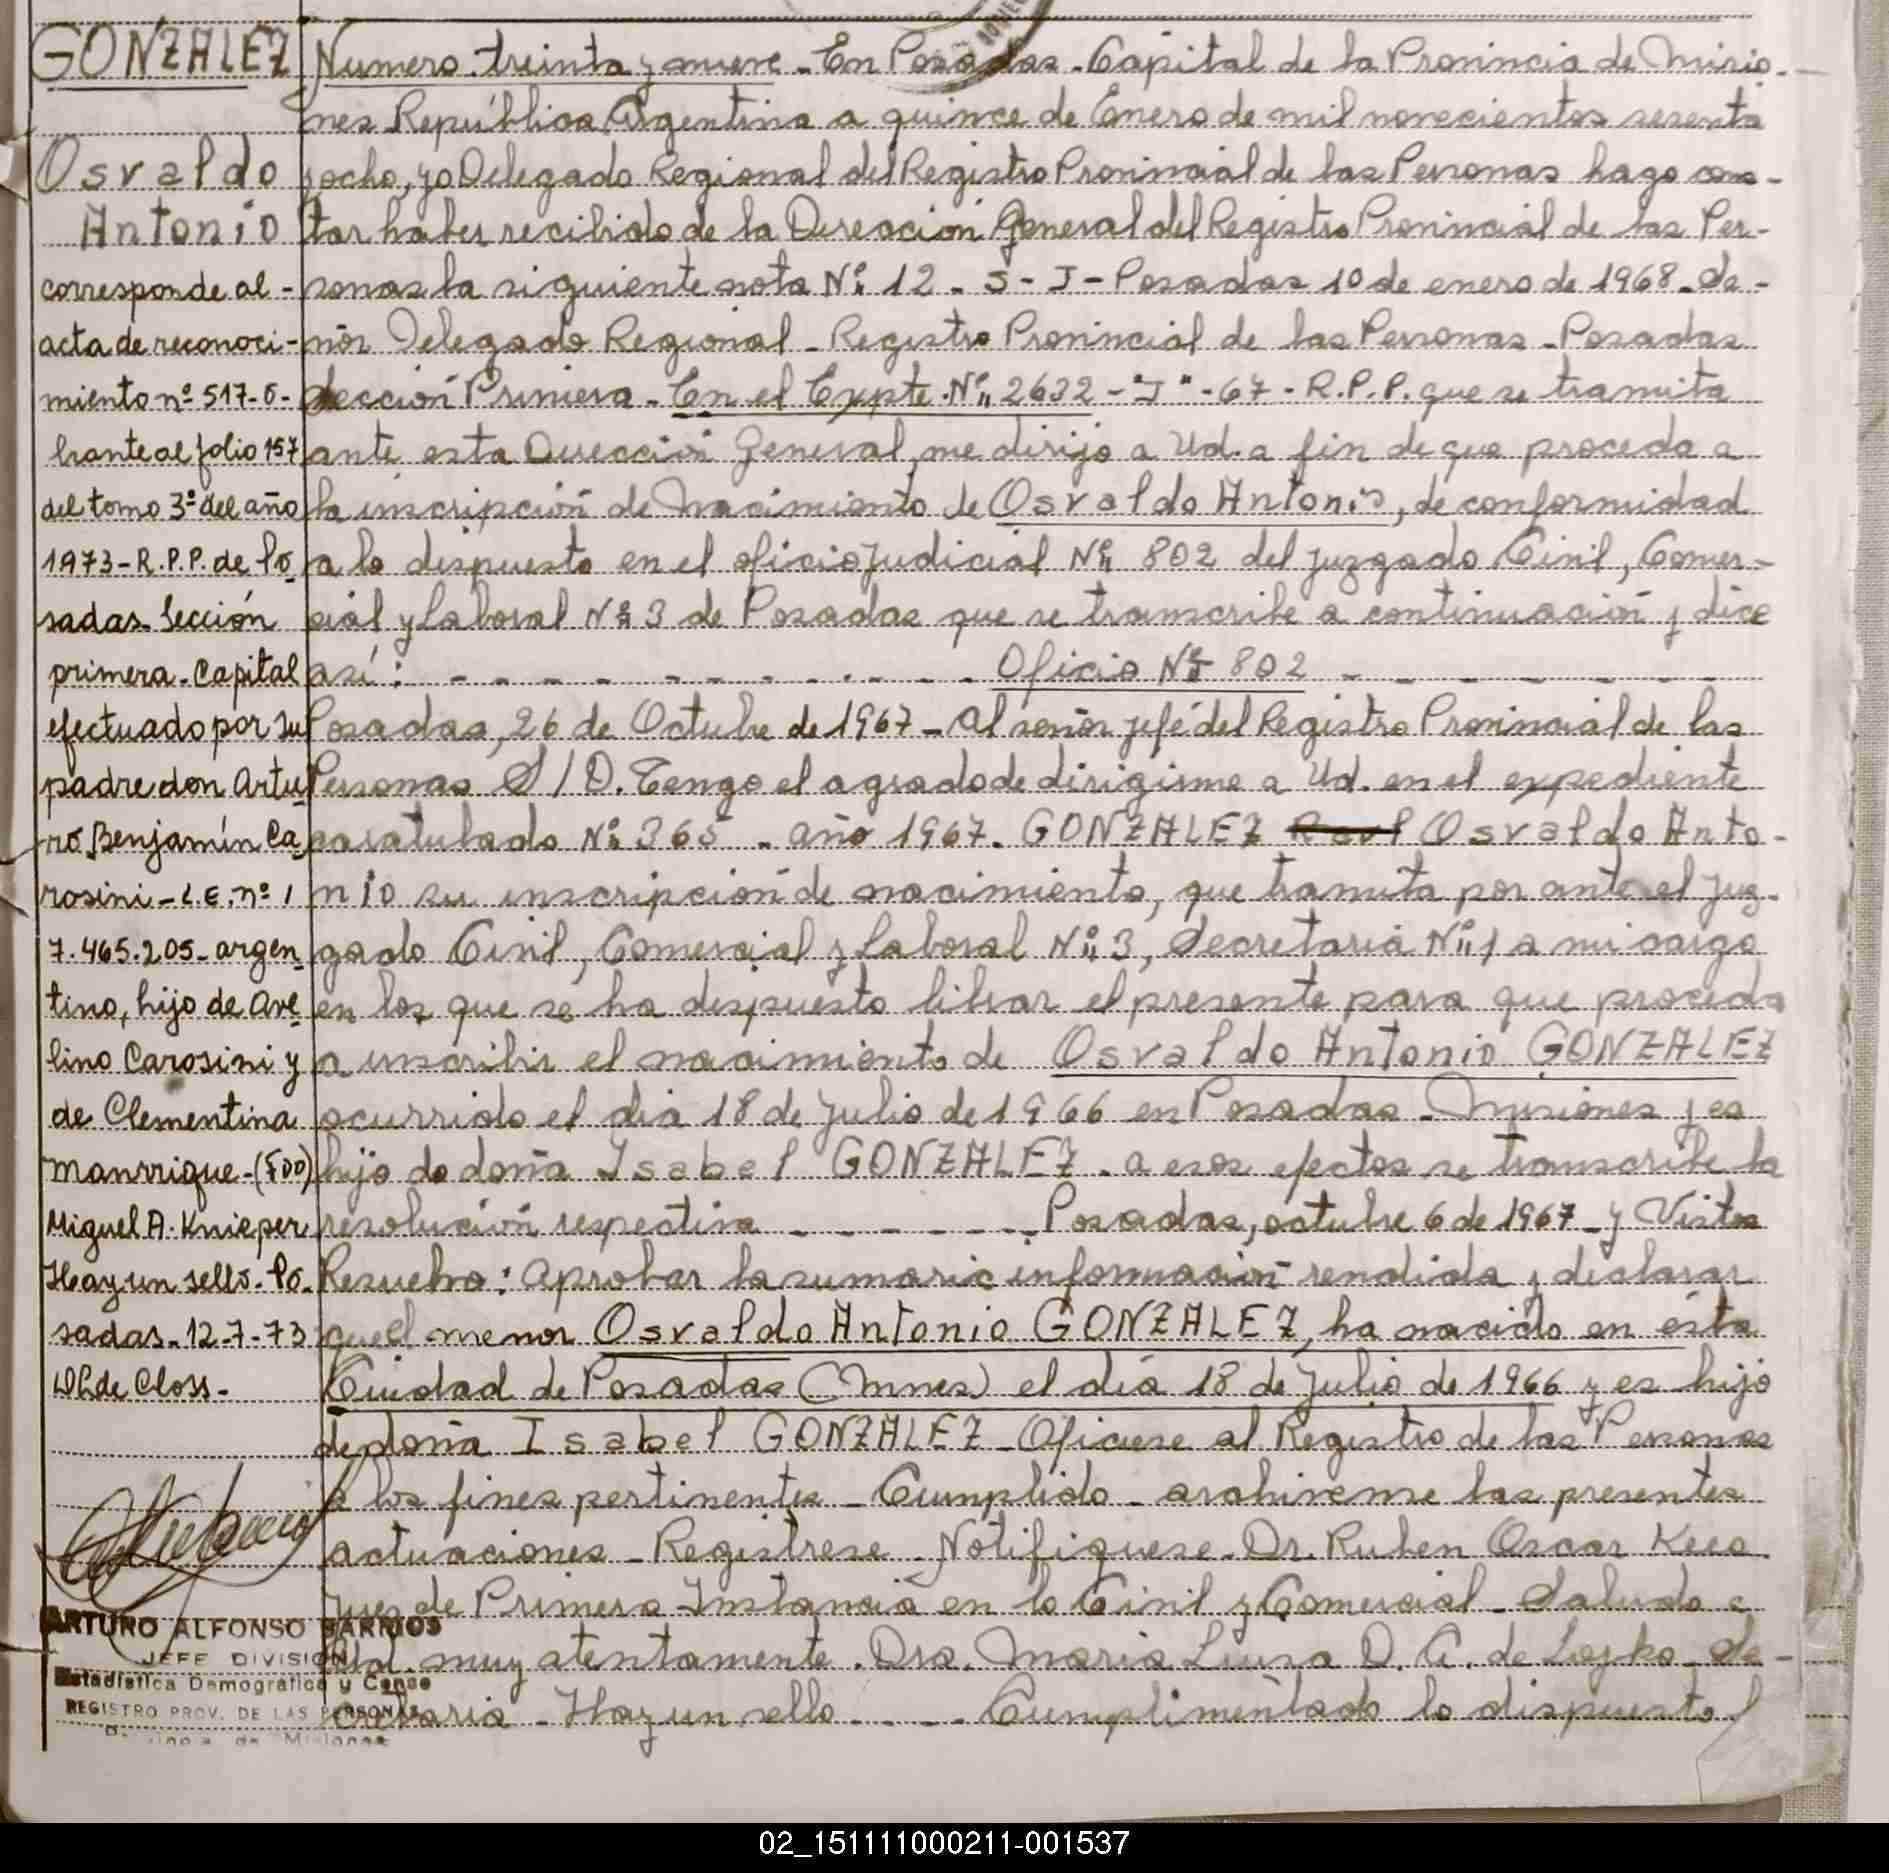 GONZALEZ
Osvaldo
Antonio
corresponde al -
acta de reconoci -
miento nº 517 - o -
brante al folio 157
del tomo 3º del año
1973 - R.P.P. de Po
sadas - Sección
primera - Capital
efectuado por su
padre don Artu
ro Benjamín Ca
rosini - L.E. nº 1
7.465.205 - argen
tino, hijo de Ave
lino Carosini y
de Clementina
Manrrique - (FDO)
Miguel A. Knieper
Hay un sello - Po
sadas - 12-7-73
de Closs -
ARTURO ALFONSO BARRIOS
JEFE DIVISION
Estadistica Demografica y Censo
REGISTRO PROV. DE LAS PERSONAS
Numero treinta y nueve - En Posadas - Capital de la Provincia de Misio -
nes República Argentina a quince de Enero de mil novecientos sesenta
y ocho, yo Delegado Regional del Registro Provincial de las Personas hago cons -
tar haber recibido de la Direccion General del Registro Provincial de las Per -
sonas la siguiente nota Nº 12 - S - J - Posadas 10 de enero de 1968 - Se -
ñor Delegado Regional - Registro Provincial de las Personas - Posadas
Sección Primera - En el Expte. Nº 2632 - "J" - 67 - R.P.P. que se tramita
ante esta Dirección General, me dirijo a Ud. a fin de que proceda a
la inscripción de nacimiento de Osvaldo Antonio, de conformidad
a lo dispuesto en el oficio Judicial Nº 802 del Juzgado Civil, Comer -
cial y Laboral Nº 3 de Posadas que se transcribe a continuación y dice
así : - - - - - - - - - - - Oficio Nº 802 - - - - - - -
Posadas, 26 de Octubre de 1967 - Al señor Jefe del Registro Provincial de las
Personas S / D. Tengo el agrado de dirigirme a Ud. en el expediente
caratulado Nº 365 - año 1967. GONZALEZ Osvaldo Anto -
nio su inscripción de nacimiento, que tramita por ante el Juz -
gado Civil, Comercial y Laboral Nº 3, Secretaria Nº 1 a mi cargo
en los que se ha dispuesto librar el presente para que proceda
a inscribir el nacimiento de Osvaldo Antonio GONZALEZ
ocurrido el día 18 de Julio de 1966 en Posadas - Misiones y es
hijo de doña Isabel GONZALEZ - a esos efectos se transcribe la
resolución respectiva - - - - - - Posadas, octubre 6 de 1967 - y Vistos
Resuelvo : Aprobar la sumaria información rendida y declarar
que el menor Osvaldo Antonio GONZALEZ, ha nacido en ésta
Ciudad de Posadas (Mnes) el día 18 de Julio de 1966 y es hijo
de doña Isabel GONZALEZ - Ofíciese al Registro de las Personas
a los fines pertinentes - Cumplido - archívense las presentes
actuaciones - Registrese - Notifiquese - Dr. Ruben Oscar
Juez de Primera Instancia en lo Civil y Comercial - Saludo a
Ud. muy atentamente. Dra. Maria Luisa D. A. de Lozko - Se -
cretaria - Hay un sello - - - - Cumplimentado lo dispuesto
02_151111000211-001537